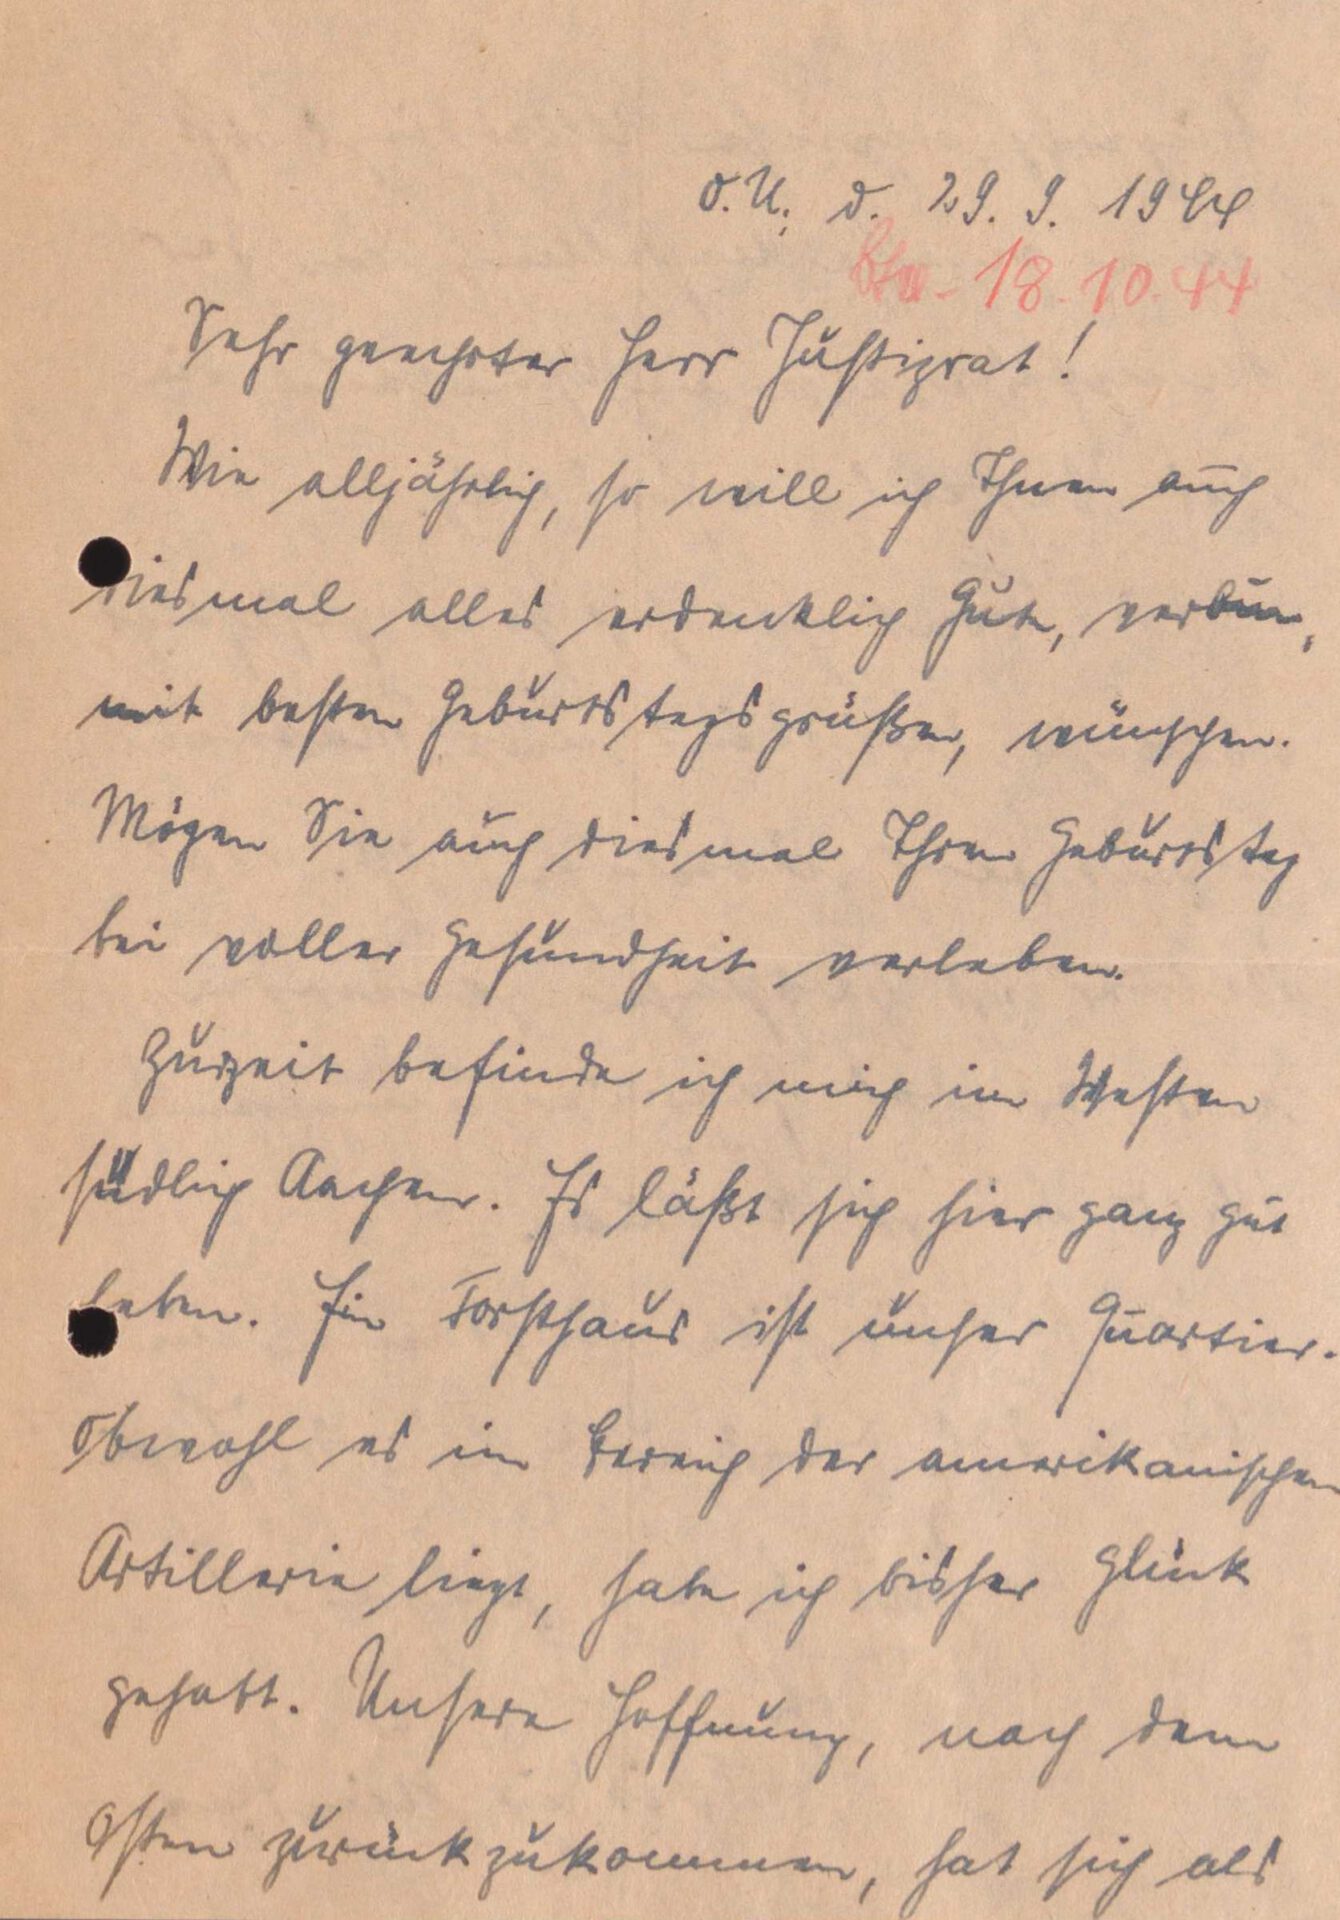 O.U., d. 29. 9. 1944
18.10.44
Sehr geehrter Herr Justizrat!
Wie alljährlich, so will ich Ihnen auch
diesmal alles erdenklich Gute, verbun
mit besten Geburtstagsgrüßen, wünschen.
Mögen Sie auch diesmal Ihren Geburtstag
bei voller Gesundheit verleben.
Zurzeit befinde ich mich im Westen
südlich Aachen. Es läßt sich hier ganz gut
leben. Ein Forsthaus ist unser Quartier.
Obwohl es im Bereich der amerikanischen
Artillerie liegt, habe ich bisher Glück
gehabt. Unsere Hoffnung, nach dem
Osten zurückzukommen, hat sich als